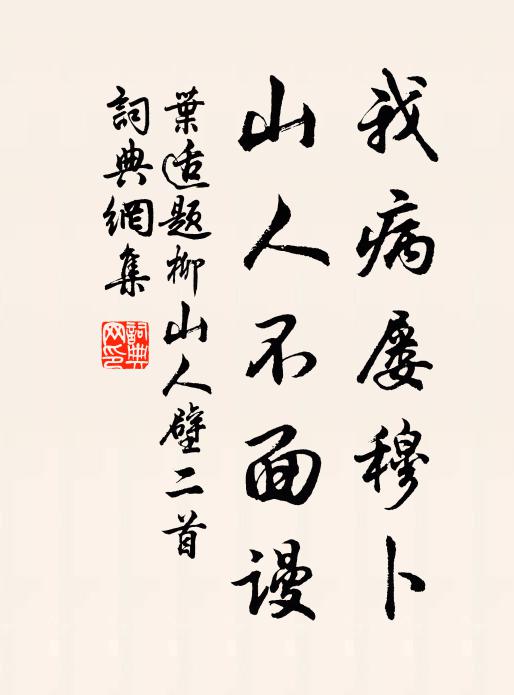 我病屡穆卜
山人不面謾
葉适题柳山人壁二首
詞典網集
詞典网印